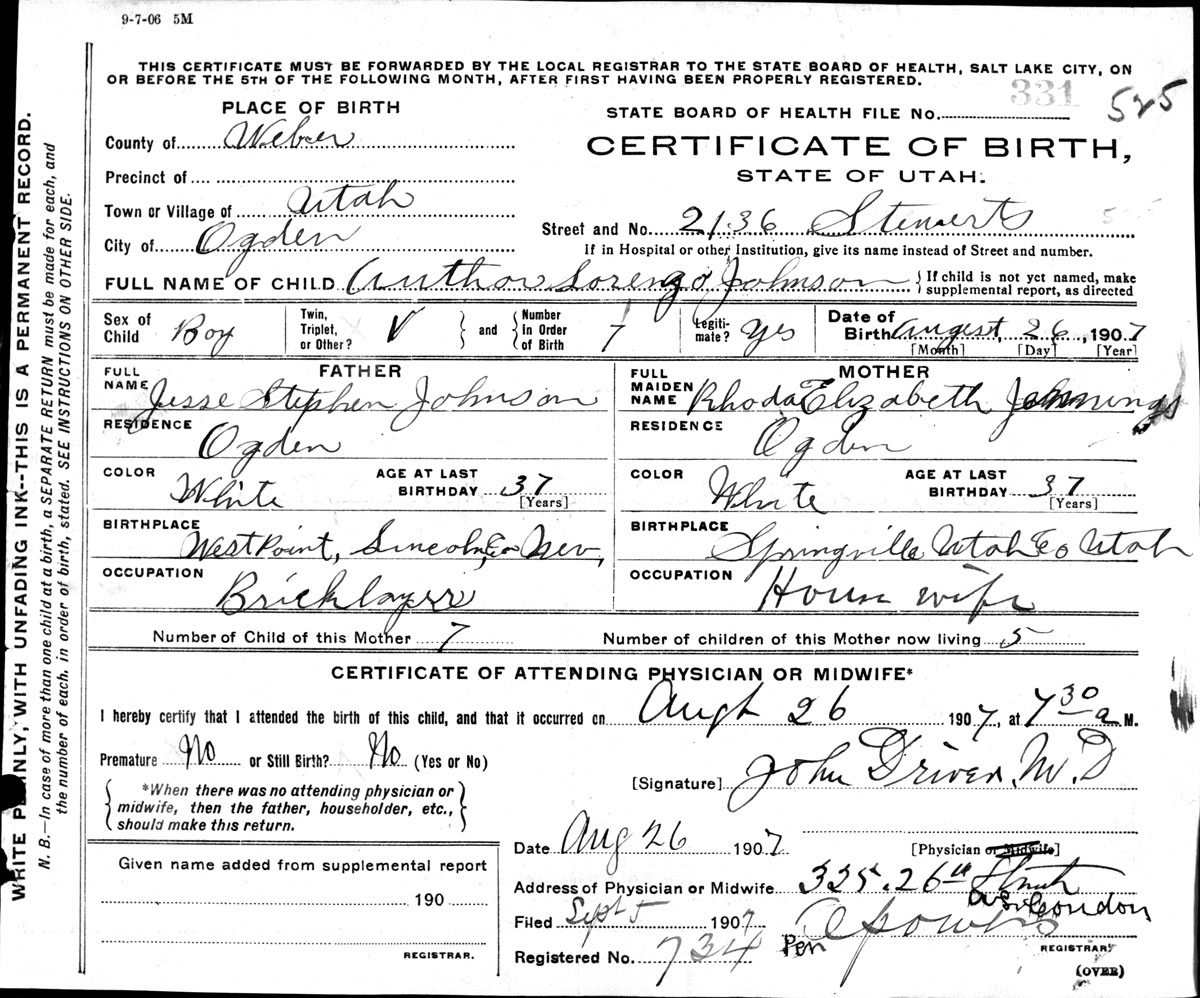 9-7-06 5M
THIS CERTIFICATE MUST BE FORWARDED BY THE LOCAL REGISTRAR TO THE STATE BOARD OF HEALTH, SALT LAKE CITY, ON
OR BEFORE THE 5TH OF THE FOLLOWING MONTH, AFTER FIRST HAVING BEEN PROPERLY REGISTERED.
PLACE OF BIRTH
STATE BOARD OF HEALTH FILE No. 331 525
County of Weber
CERTIFICATE OF BIRTH,
STATE OF UTAH.
Precinct of
Town or Village of Utah
City of Ogden
Street and No. 2136 Stewerts
If in Hospital or other Institution, give its name instead of Street and number.
FULL NAME OF CHILD Author Lorenzo Johnson { If child is not yet named, make
supplemental report, as directed
Sex of Child Boy
Twin, Triplet, or Other? V } and { Number In Order of Birth 7
Legiti-mate? Yes
Date of Birth Augest, 26, 1907
[Month] [Day] [Year]
FATHER
FULL NAME Jesse Stephen Johnson
RESIDENCE Ogden
COLOR White AGE AT LAST BIRTHDAY 37 [Years]
BIRTHPLACE West Point, Lincoln, Co Nev,
OCCUPATION Bricklayer
MOTHER
FULL MAIDEN NAME Rhoda Elizabeth Jennings
RESIDENCE Ogden
COLOR White AGE AT LAST BIRTHDAY 37 [Years]
BIRTHPLACE Springville Utah Co Utah
OCCUPATION House wife
Number of Child of this Mother 7 Number of children of this Mother now living 5
CERTIFICATE OF ATTENDING PHYSICIAN OR MIDWIFE*
I hereby certify that I attended the birth of this child, and that it occurred on Augt 26 1907, at 7 30 a M.
Premature No or Still Birth? No (Yes or No)
{ *When there was no attending physician or
midwife, then the father, householder, etc.,
should make this return. }
[Signature] John Driver, M.D
[Physician or Midwife]
Date Aug 26 1907
Address of Physician or Midwife 325. 26th
Filed Sept 5 1907
Registered No. 734
Pen
REGISTRAR.
(OVER)
Given name added from supplemental report
190
REGISTRAR.
WRITE PLAINLY, WITH UNFADING INK--THIS IS A PERMANENT RECORD.
N. B.—In case of more than one child at a birth, a SEPARATE RETURN must be made for each, and
the number of each, in order of birth, stated. SEE INSTRUCTIONS ON OTHER SIDE.